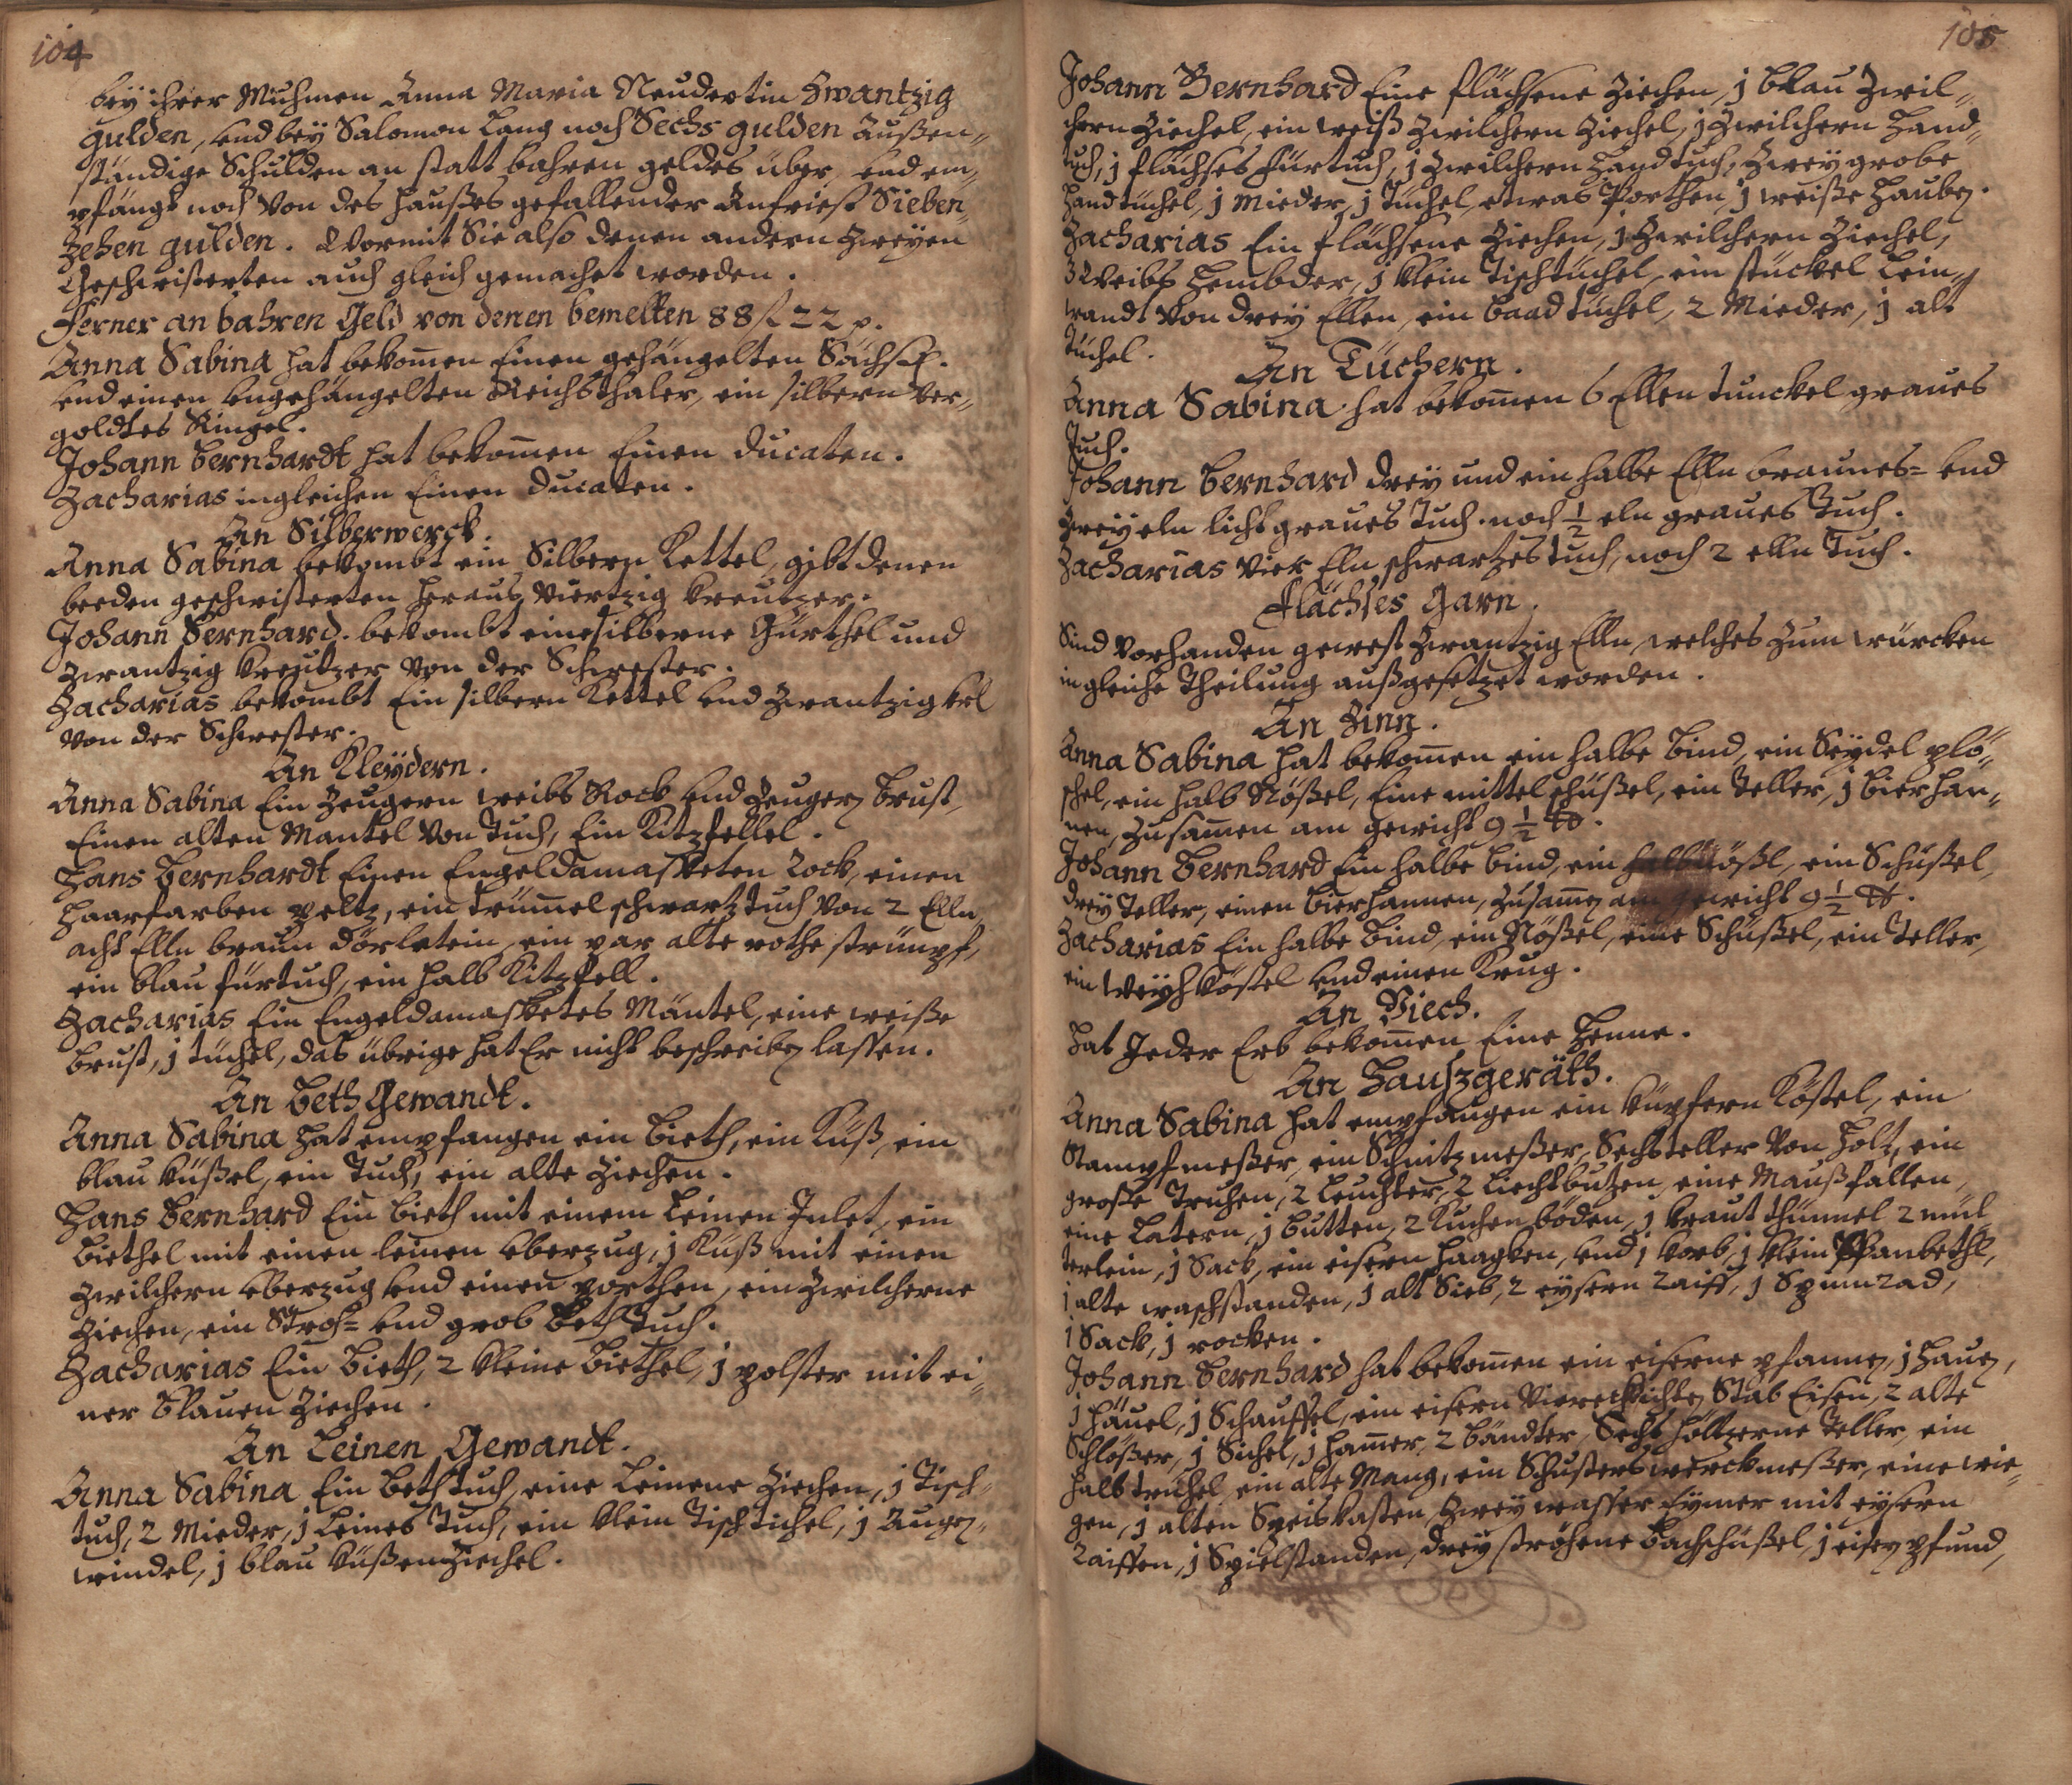 104
bey ihrer Muhmen Anna Maria Neudertin Zwantzig
gulden, und bey Salomon Lang noch Sechs gulden Außen-
ständige Schulden an statt bahren geldes über, und em-
pfängt noch von des Haußes gefallender Anfrist Sieben-
zehen gulden. Wormit Sie also denen andern zweyen
Geschwisterten auch gleich gemachet worden.
Ferner an bahren Geld von denen bemelten 88 f 22 p.
Anna Sabina hat bekom̄en Einen gehängelten Sächß.
und einen ungehängelten Reichsthaler, ein silbern ver-
goldtes Ringel.
Johann Bernhardt hat bekom̄en Einen ducaten.
Zacharias ingleichen Einen ducaten.
An Silberwerck.
Anna Sabina bekombt ein Silbern Kettel, gibt denen
beeden geschwisterten heraus viertzig Kreutzer.
Johann Bernhard. bekombt eine silberne Gürthel und
zwantzig Kreutzer von der Schwester.
Zacharias bekombt Ein silbern Kettel und zwantzig krl
von der Schwester.
An Kleydern.
Anna Sabina Ein Zeugern weibs Rock und Zeugen Brust,
Einen alten Mantel von Tuch, Ein Kitzfellel.
Hans Bernhardt Einen Engeldamasketen Rock, einen
Haarfarben peltz, ein trüm̄el schwartz tuch von 2 Elln,
acht Elln braun dörletein, ein par alte rothe strümpf,
ein blau fürtuch, ein halb Kitzfell.
Zacharias Ein Engeldamasketes Mäntel, eine weiße
Brust, j tüchel, das übrige hat Er nicht beschreiben lassen.
An Beth Gewandt.
Anna Sabina hat empfangen ein Bieth, ein Küß, ein
blau küßel, ein Tuch, ein alte Ziechen.
Hans Bernhard Ein Bieth mit einem Leinen Inlet, ein
Biethel mit einen leinen Uberzug, j Küß mit einen
zwilchern Uberzug und einen porthen, ein zwilcherne
Ziechen, ein Stroh= und grob Beth Tuch.
Zacharias Ein Bieth, 2 kleine Biethel, j polster mit ei-
ner blauen Ziechen.
An Leinen Gewandt.
Anna Sabina Ein Bethtuch, eine Leinene Ziechen, j Tisch-
tuch, 2 Mieder, j Leines Tuch, ein klein Tischtichel, j Augen-
windel, j blau küßenziechel.
105
Johann Bernhard Eine flächsene Ziechen, j blau Zwil-
chern Ziechel, ein weiß zwilchern Ziechel, j zwilchern Hand-
tuch, j flächses fürtuch, j zwilchern Handtuch, zwey grobe
Handtüchel, j Mieder, j Tüchel, etwas Porthen, j weiße Hauben.
Zacharias Ein flächsene Ziechen, j Zwilchern Ziechel,
3 Weibs Hembder, j klein Tischtüchel, ein stückel Lein-
wandt von drey Ellen, ein baad tüchel, 2 Mieder, j alt
Tüchel.
An Tüchern.
Anna Sabina hat bekom̄en 6 Ellen tunckel graues
Tuch.
Johann Bernhard drey und ein halbe Elln braunes= und
zwey eln licht graues Tuch. noch ½ eln graues Tuch.
Zacharias vier Eln schwartzes tuch, noch 2 elln Tuch.
Flächses Garn.
Sind vorhanden gewest zwantzig Elln, welches zum würcken
in gleiche Theilung außgesetzet worden.
An Zinn.
Anna Sabina hat bekom̄en ein halbe Bind, ein Seydel plö-
schel, ein halb Nößel, Eine mittel schüßel, ein Teller, j bierkan-
nen, zusam̄en am gewicht 9 ½ ℔.
Johann Bernhard Ein halbe bind, ein halb Nößl, ein Schüßel,
drey Teller, einen bierkannen, zusam̄en am gewicht 9 ½ ℔.
Zacharias Ein halbe Bind, ein Nößel, eine Schüßel, ein Teller,
ein Weyhkößel und einen Krug.
An Viech.
Hat Jeder Erb bekom̄en Eine Henne.
An Haußgeräth.
Anna Sabina hat empfangen ein küpfern Kößel, ein
Stampfmeßer, ein Schnitzmeßer, Sechs teller von Holtz, ein
große Truhen, 2 Leuchter, 2 Liechtbutzen, eine Maußfallen,
eine Latern, j butten, 2 Kuchenböden, j kraut thünnel 2 mül-
terlein, j Sack, ein eisern haagken, und j korb, j klein Spanbethl,
j alte waschstanden, j alt Sieb, 2 eysern Raiff, j Spinnrad,
j Sack, j rocken.
Johann Bernhard hat bekom̄en ein eiserne pfannen, j Hauen,
j häuel, j Schauffel, ein eisern viereckichten Stab Eisen, 2 alte
Schlößer, j Sichel, j ham̄er, 2 bändter, Sechs höltzerne Teller, ein
halb trühel, ein alte Mang, ein Schusters werckmeßer, eine wie-
gen, j alten Speiskasten, zwey wasser Eymer mit eysern
Raiffen, j Spielstanden, drey ströhene bachschüßel, j eisen pfund,